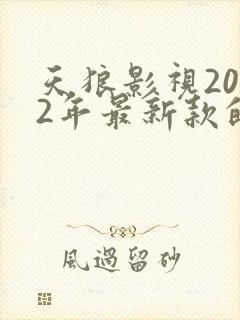 天狼影視20
2年最新款的
風過留砂